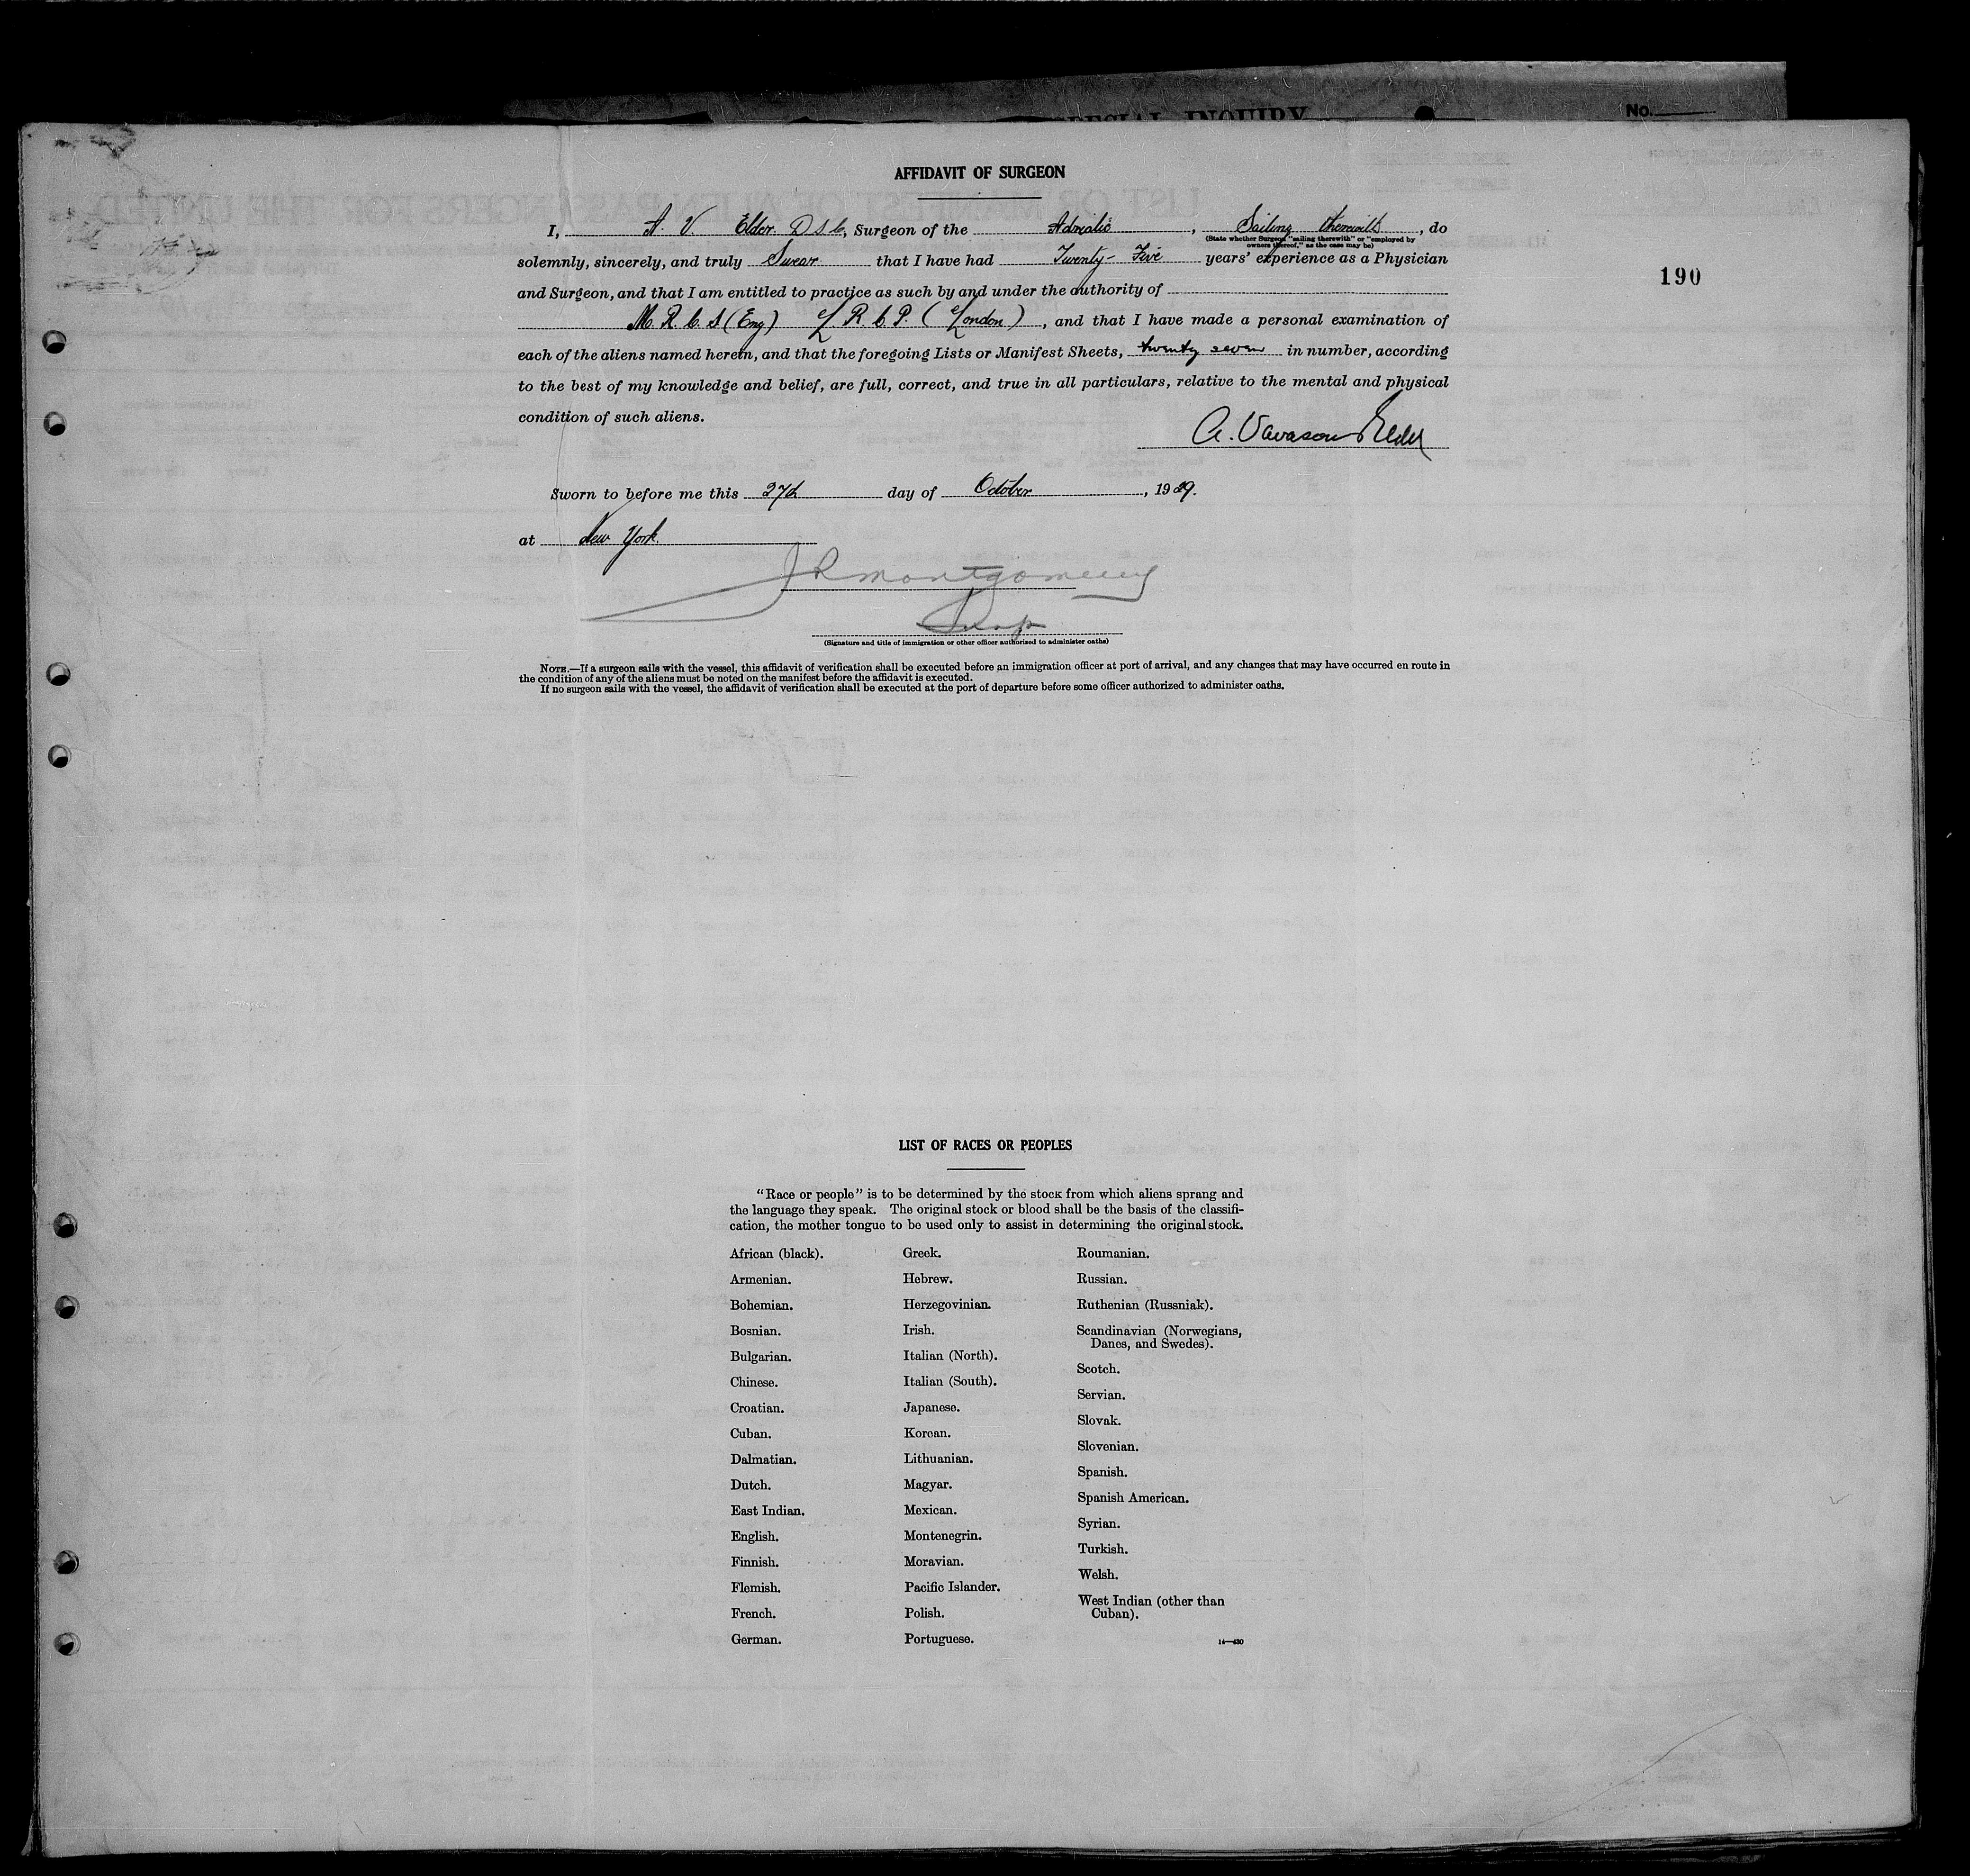 SPECIAL INQUIRY
No.
AFFIDAVIT OF SURGEON
I, A. V. Elder D S C, Surgeon of the Adriatic, Sailing therewith, do
(State whether Surgeon "sailing therewith" or "employed by
owners thereof," as the case may be)
solemnly, sincerely, and truly Swear that I have had Twenty-Five years' experience as a Physician
190
and Surgeon, and that I am entitled to practice as such by and under the authority of
M. R. C. S (Eng) L. R. C. P. (London), and that I have made a personal examination of
each of the aliens named herein, and that the foregoing Lists or Manifest Sheets, twenty seven in number, according
to the best of my knowledge and belief, are full, correct, and true in all particulars, relative to the mental and physical
condition of such aliens.
A. Vavasour Elder
Sworn to before me this 27th day of October, 1929.
at New York.
J R Montgomery
Insp
(Signature and title of immigration or other officer authorized to administer oaths)
NOTE.—If a surgeon sails with the vessel, this affidavit of verification shall be executed before an immigration officer at port of arrival, and any changes that may have occurred en route in
the condition of any of the aliens must be noted on the manifest before the affidavit is executed.
If no surgeon sails with the vessel, the affidavit of verification shall be executed at the port of departure before some officer authorized to administer oaths.
LIST OF RACES OR PEOPLES
"Race or people" is to be determined by the stock from which aliens sprang and
the language they speak. The original stock or blood shall be the basis of the classifi-
cation, the mother tongue to be used only to assist in determining the original stock.
African (black).
Armenian.
Bohemian.
Bosnian.
Bulgarian.
Chinese.
Croatian.
Cuban.
Dalmatian.
Dutch.
East Indian.
English.
Finnish.
Flemish.
French.
German.
Greek.
Hebrew.
Herzegovinian.
Irish.
Italian (North).
Italian (South).
Japanese.
Korean.
Lithuanian.
Magyar.
Mexican.
Montenegrin.
Moravian.
Pacific Islander.
Polish.
Portuguese.
Roumanian.
Russian.
Ruthenian (Russniak).
Scandinavian (Norwegians,
Danes, and Swedes).
Scotch.
Servian.
Slovak.
Slovenian.
Spanish.
Spanish American.
Syrian.
Turkish.
Welsh.
West Indian (other than
Cuban).
14—430